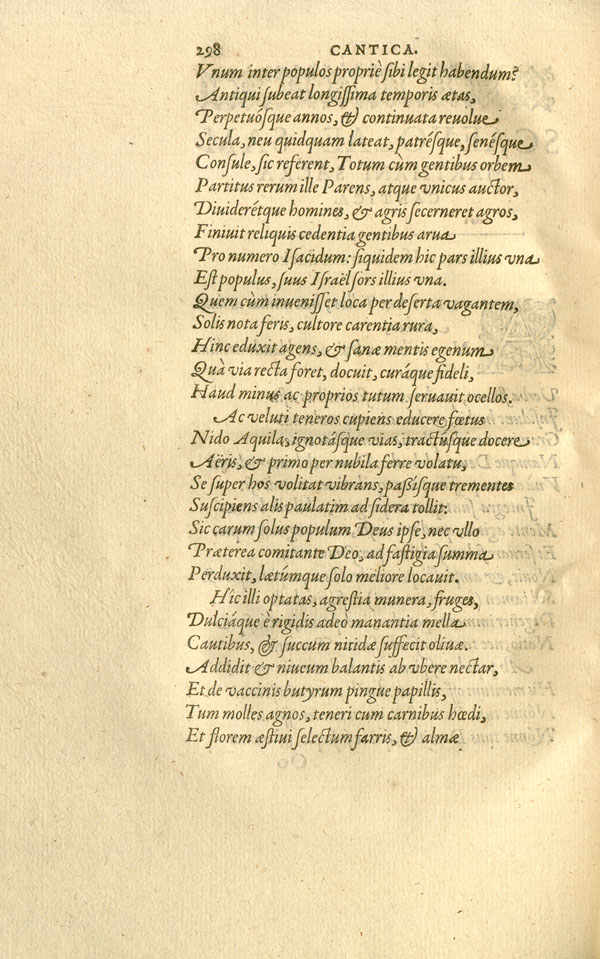 298 CANTICA.
Vnum inter populos propriè sibi legit habendum?
Antiqui subeat longissima temporis ætas,
Perpetuósque annos, & continuata reuolue
Secula, neu quidquam lateat, patrésque, senésque
Consule, sic referent, Totum cùm gentibus orbem
Partitus rerum ille Parens, atque vnicus auctor,
Diuiderétque homines, & agris secerneret agros,
Finiuit reliquis cedentia gentibus arua
Pro numero Isacidum: siquidem hic pars illius vna
Est populus, suus Israël sors illius vna.
Quem cùm inuenisset loca per deserta vagantem,
Solis nota feris, cultore carentia rura,
Hinc eduxit agens, & sanæ mentis egenum
Quà via recta foret, docuit, curáque fideli,
Haud minus ac proprios tutum seruauit ocellos.
Ac veluti teneros cupiens educere fœtus
Nido Aquila, ignotásque vias, tractúsque docere
Aëris, & primo per nubila ferre volatu,
Se super hos volitat vibrans, passísque trementes
Suscipiens alis paulatim ad sidera tollit:
Sic carum solus populum Deus ipse, nec vllo
Præterea comitante Deo, ad fastigia summa
Perduxit, lætúmque solo meliore locauit.
Hic illi optatas, agrestia munera, fruges,
Dulciáque è rigidis adeò manantia mella
Cautibus, & succum nitidæ suffecit oliuæ.
Addidit & niueum balantis ab vbere nectar,
Et de vaccinis butyrum pingue papillis,
Tum molles agnos, teneri cum carnibus hœdi,
Et florem æstiui selectum farris, & almæ